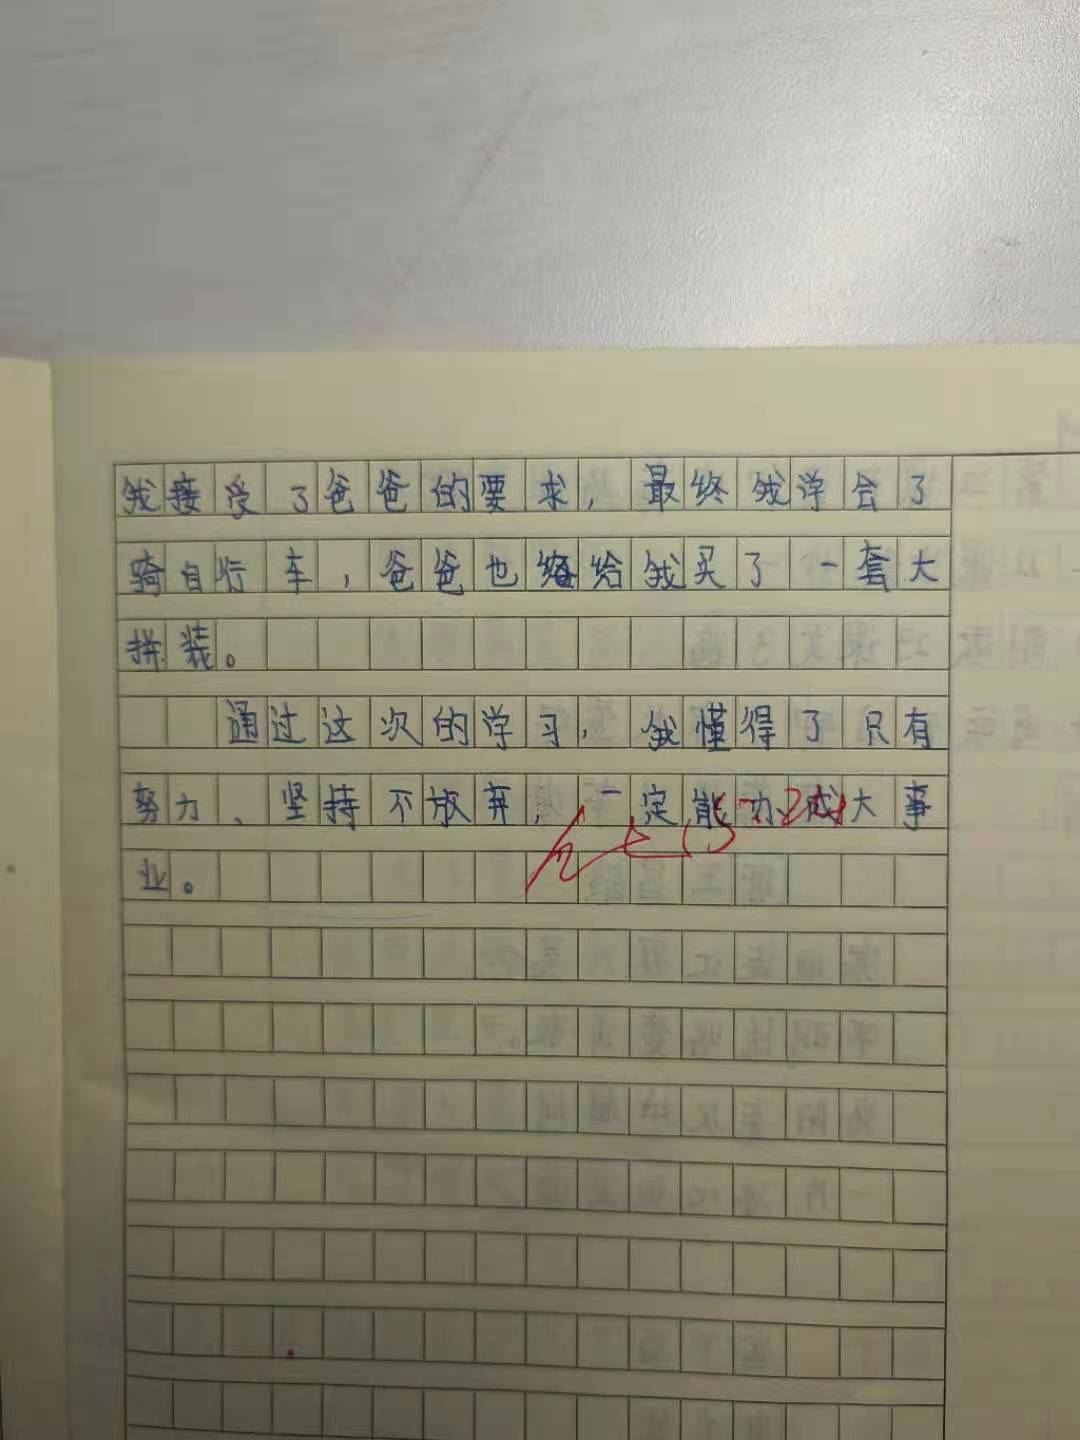 我接受了爸爸的要求，最终我学会了
骑自行车，爸爸也给我买了一套大
拼装。
通过这次的学习，我懂得了只有
努力、坚持不放弃，一定能办成大事
业。